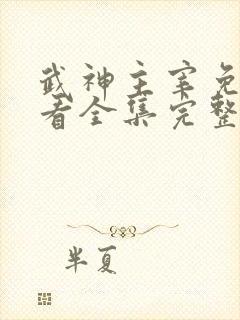 武神主宰免
看全集完整
半夏